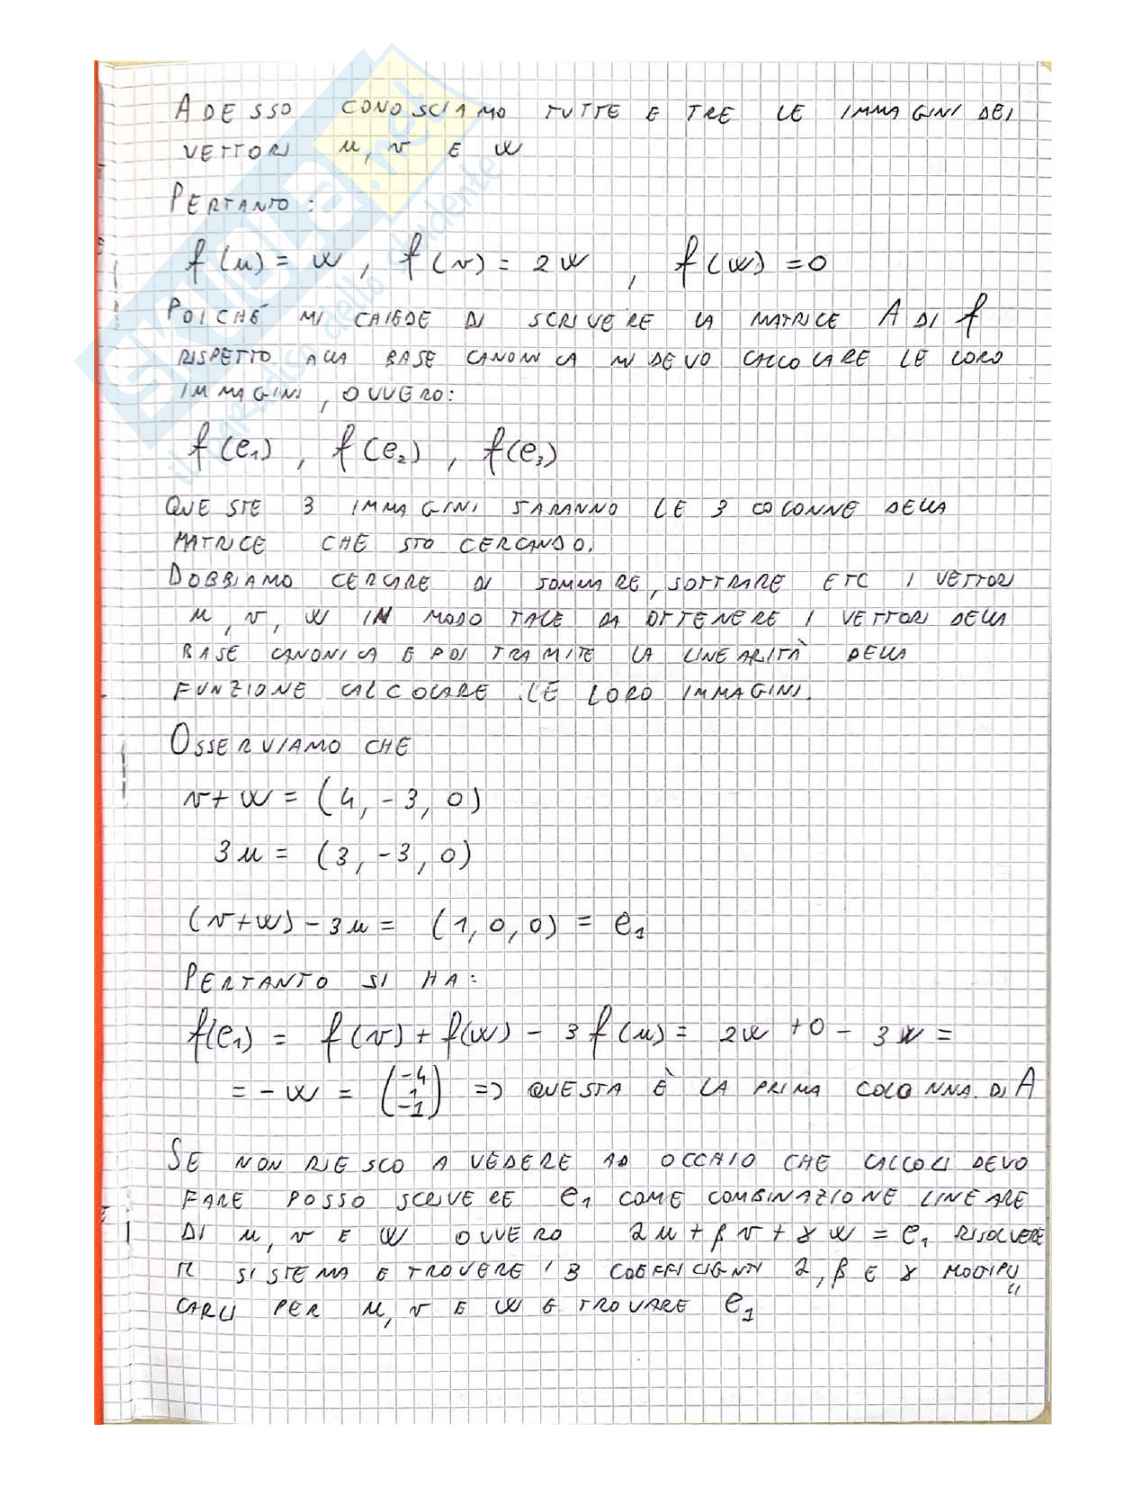 ADESSO CONOSCIAMO TUTTE E TRE LE IMMAGINI DEI
VETTORI u, v E w
PERTANTO:
f(u) = w, f(v) = 2w, f(w) = 0
POICHÉ MI CHIEDE DI SCRIVERE LA MATRICE A DI f
RISPETTO ALLA BASE CANONICA MI DEVO CALCOLARE LE LORO
IMMAGINI, OVVERO:
f(e₁), f(e₂), f(e₃)
QUESTE 3 IMMAGINI SARANNO LE 3 COLONNE DELLA
MATRICE CHE STO CERCANDO.
DOBBIAMO CERCARE DI SOMMARE, SOTTRARRE ETC I VETTORI
u, v, w IN MODO TALE DA OTTENERE I VETTORI DELLA
BASE CANONICA E POI TRAMITE LA LINEARITÀ DELLA
FUNZIONE CALCOLARE LE LORO IMMAGINI.
OSSERVIAMO CHE
v + w = (4, -3, 0)
3u = (3, -3, 0)
(v+w) - 3u = (1, 0, 0) = e₁
PERTANTO SI HA:
f(e₁) = f(v) + f(w) - 3f(u) = 2w + 0 - 3w =
= -w = (-4 1 -1) => QUESTA È LA PRIMA COLONNA DI A
SE NON RIESCO A VEDERE AD OCCHIO CHE CALCOLI DEVO
FARE POSSO SCRIVERE e₁ COME COMBINAZIONE LINEARE
DI u, v E w OVVERO αu + βv + γw = e₁ RISOLVERE
IL SISTEMA E TROVERE I 3 COEFFICIENTI α, β E γ MOLTIPLI
CARLI PER u, v E w E TROVARE e₁